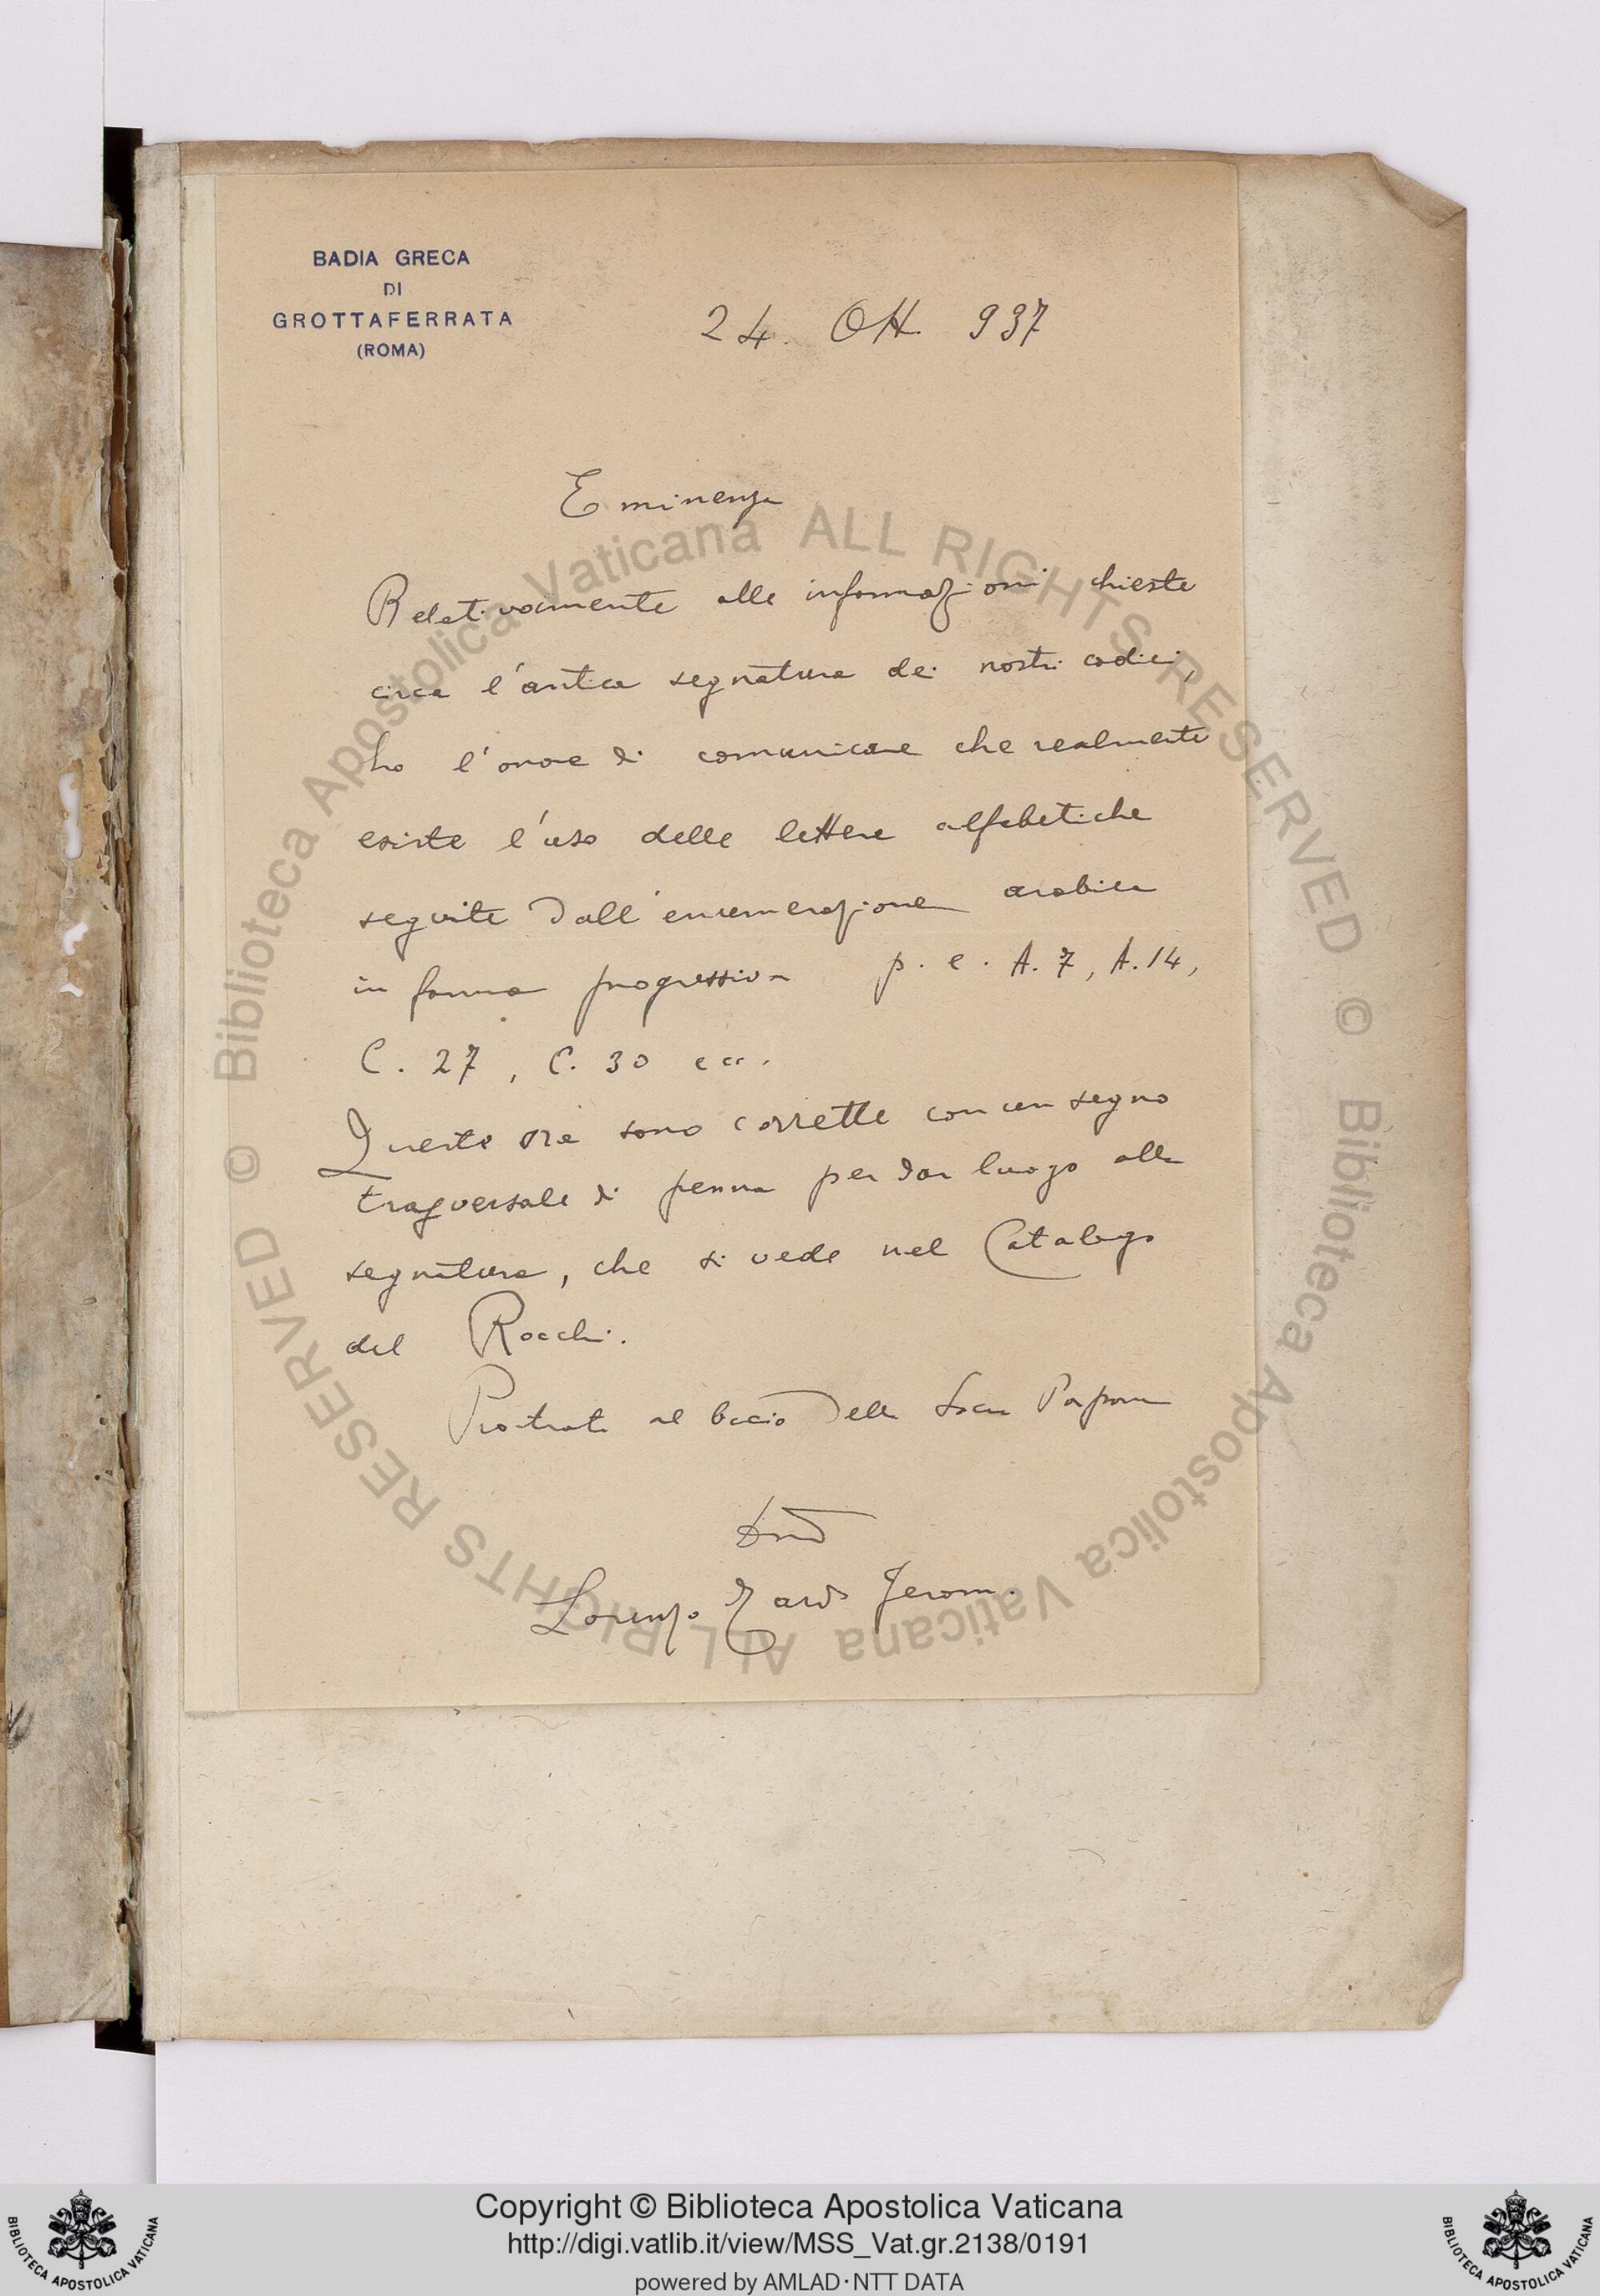 BADIA GRECA
DI
GROTTAFERRATA
(ROMA)
24. Ott. 937
Eminenza
Relativamente alle informazioni chieste
circa l'antica segnatura dei nostri codici,
ho l'onore di comunicare che realmente
esiste l'uso delle lettere alfabetiche
seguite dall'enumerazione arabica
in forma progressiva p. e. A. 7, A. 14,
C. 27, C. 30 ecc.
Queste ora sono corrette con un segno
trasversale di penna per dar luogo alla
segnatura, che si vede nel Catalogo
del Rocchi.
Prostrato al bacio della Sacra Porpora
Lorenzo Tardo Jerom.
© Biblioteca Apostolica Vaticana ALL RIGHTS RESERVED © Biblioteca Apostolica Vaticana ALL RIGHTS RESERVED
Copyright © Biblioteca Apostolica Vaticana
http://digi.vatlib.it/view/MSS_Vat.gr.2138/0191
powered by AMLAD·NTT DATA
BIBLIOTECA APOSTOLICA VATICANA
BIBLIOTECA APOSTOLICA VATICANA